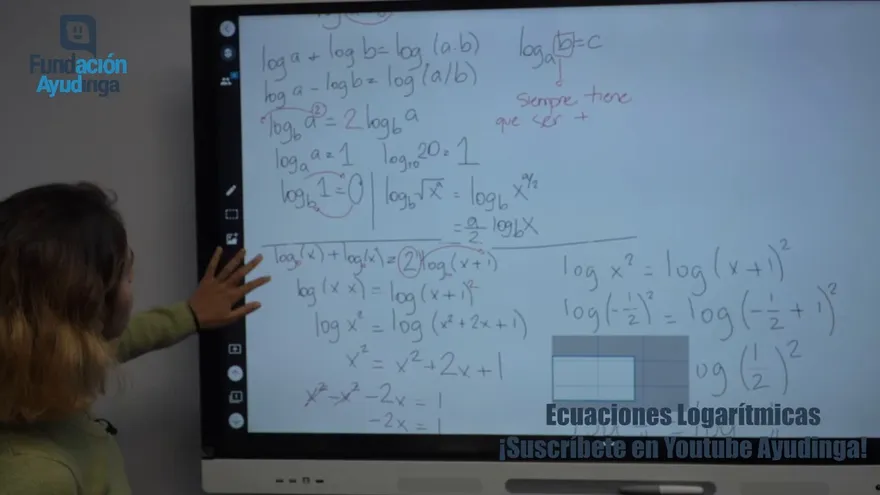 Fundación
Ayudinga
log a + log b = log (a.b)
log a - log b = log (a/b)
log_b a^2 = 2 log_b a
log_a a = 1 log_20 20 = 1
log_b 1 = 0 | log_b √x^a = log_b x^a/2
= a/2 log_b x
log_a b = c
siempre tiene
que ser +
log(x) + log(x) = 2 log (x+1)
log (x x) = log (x+1)^2
log x² = log (x² + 2x + 1)
x² = x² + 2x + 1
x² - x² - 2x = 1
-2x = 1
log x² = log (x+1)²
log (-1/2)² = log (-1/2 + 1)²
og (1/2)²
Ecuaciones Logarítmicas
¡Suscríbete en Youtube Ayudinga!